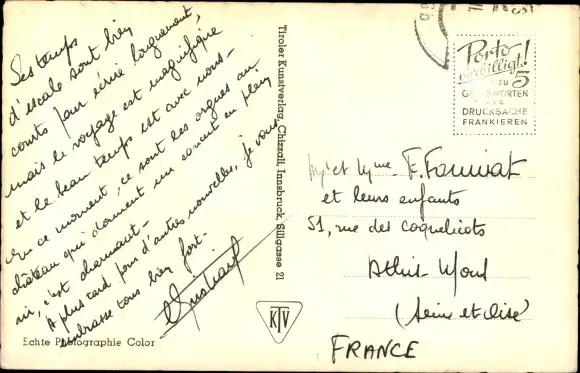 Les temps
d'escale sont bien
courts pour écrire longuement,
mais le voyage est magnifique
et le beau temps est avec nous -
En ce moment, ce sont les orgues au
château qui donnent un concert en plein
air, c'est charmant -
A plus tard pour d'autres nouvelles, je vous
embrasse tous bien fort.
Echte Photographie Color
Tiroler Kunstverlag, Chizzali, Innsbruck, Sillgasse 21
KTV
Porto
verbilligt!
ZU 5
GRUSSWORTEN
ALS
DRUCKSACHE
FRANKIEREN
Mr et Mme F.
et leurs enfants
51, rue des coquelicots
Athis-Mons
(Seine et Oise)
FRANCE